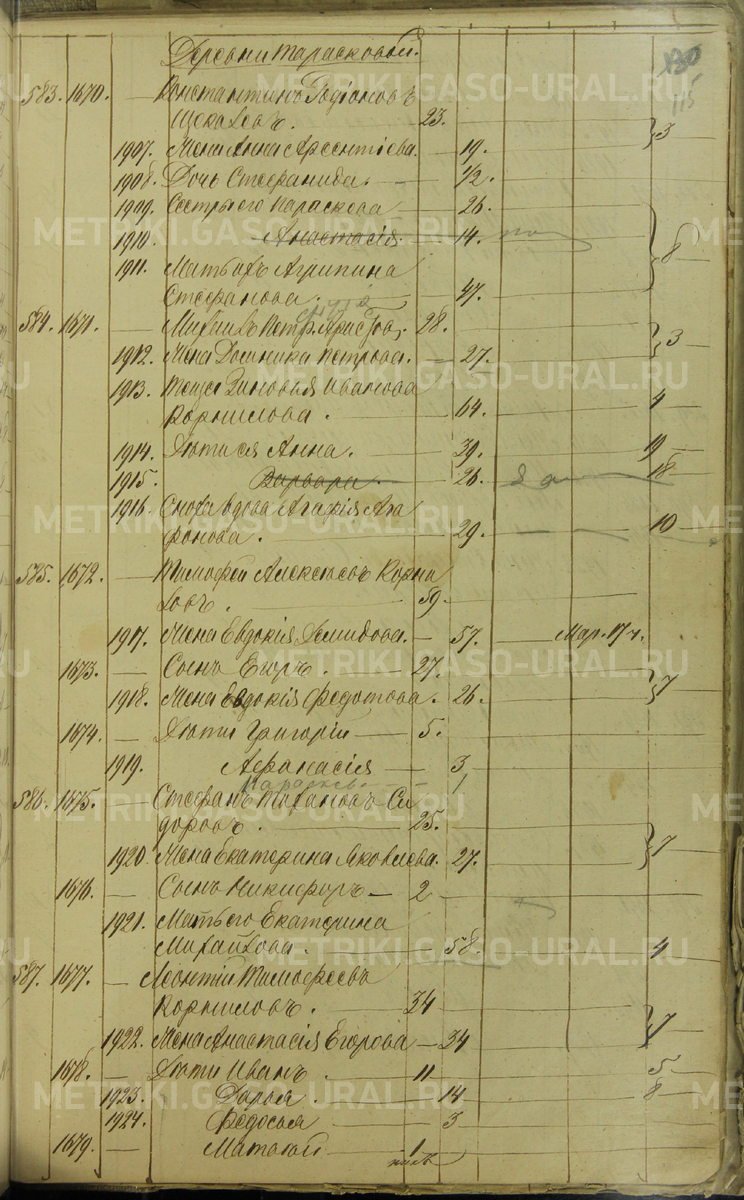 Деревни Тарасковой. 130
115
583. 1670. — Константинъ Родіоновъ
Щекалевъ. 23. 3
1907. Жена Анна Арсентіева. — 19.
1908. Дочь Стефанида. — 1/2.
1909. Сестры его Параскова — 26.
1910. Анастасія. 14. 8
1911. Мать ихъ Агрипина
Стефанова. — 47.
584. 1671. — Михаилъ Петр. 28. 3
1912. Жена Домника Петрова. — 27.
1913. Теща Зиновья Иванова
Корнилова. 64. 4
1914. Дѣти ея Анна. — 39. 19
1915. Варвара. — 26. 18
1916. Сноха вдова Агафія Ага
фонова. 29. 10
585. 1672. — Тимофей Алексѣевъ Корни
ловъ. 59.
1917. Жена Евдокія Демидова. — 57. Мар. 17 ч.
1673. — Сынъ Егоръ. — 27. 7
1918. Жена Евдокія Федотова. 26.
1674. — Дѣти Григорій — 5.
1919. Афанасія — 3,
Параскев. 1
586. 1675. — Стефанъ Си
доровъ. 25.
1920. Жена Екатерина Яковлева. 27. 7
1676. — Сынъ Никифоръ — 2
1921. Мать его Екатерина
Михайлова. 58. 4
587. 1677. — Леонтій Тимофеевъ
Корниловъ. 34
1922. Жена Анастасія Егорова — 34 7
1678. — Дѣти Иванъ. 11 5
1923. Дарья. — 14 8
1924. Федосья — 3
1679. — Матвей 1
METRIKI.GASO-URAL.RU